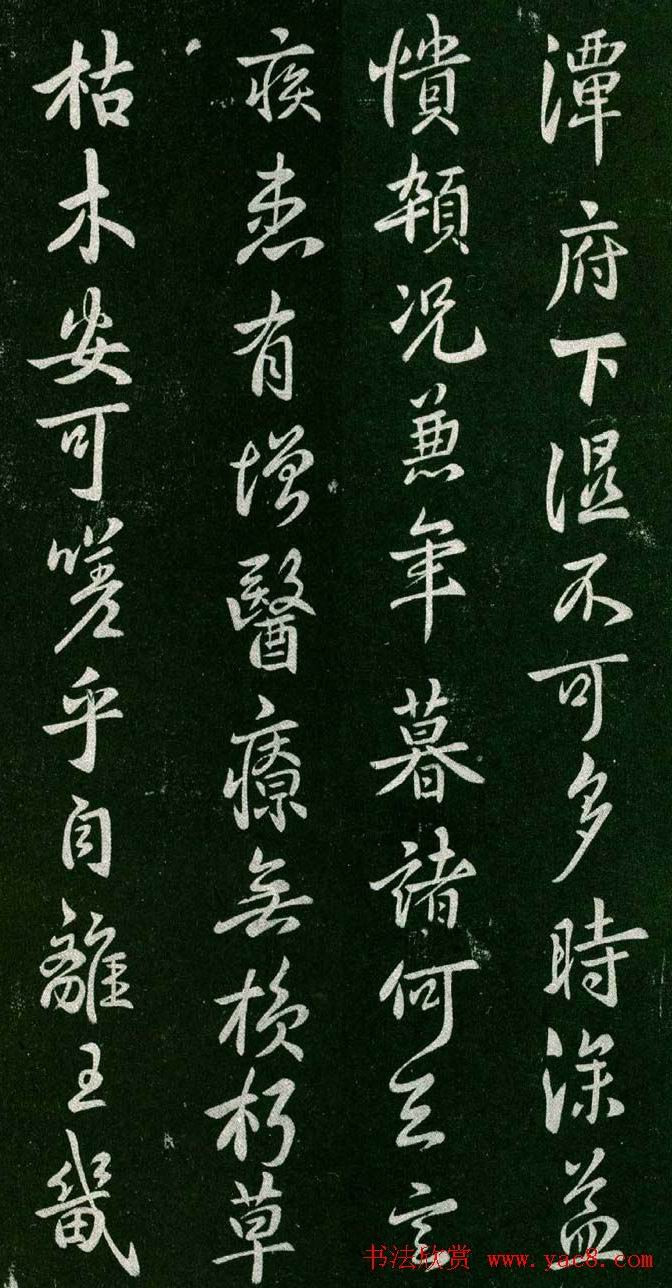 潭府下湿不可多時深益
憒頓況兼年暮諸何足言
疾患有增醫療無損朽草
枯木安可嗟乎自離王畿
书法欣赏 www.yac8.com